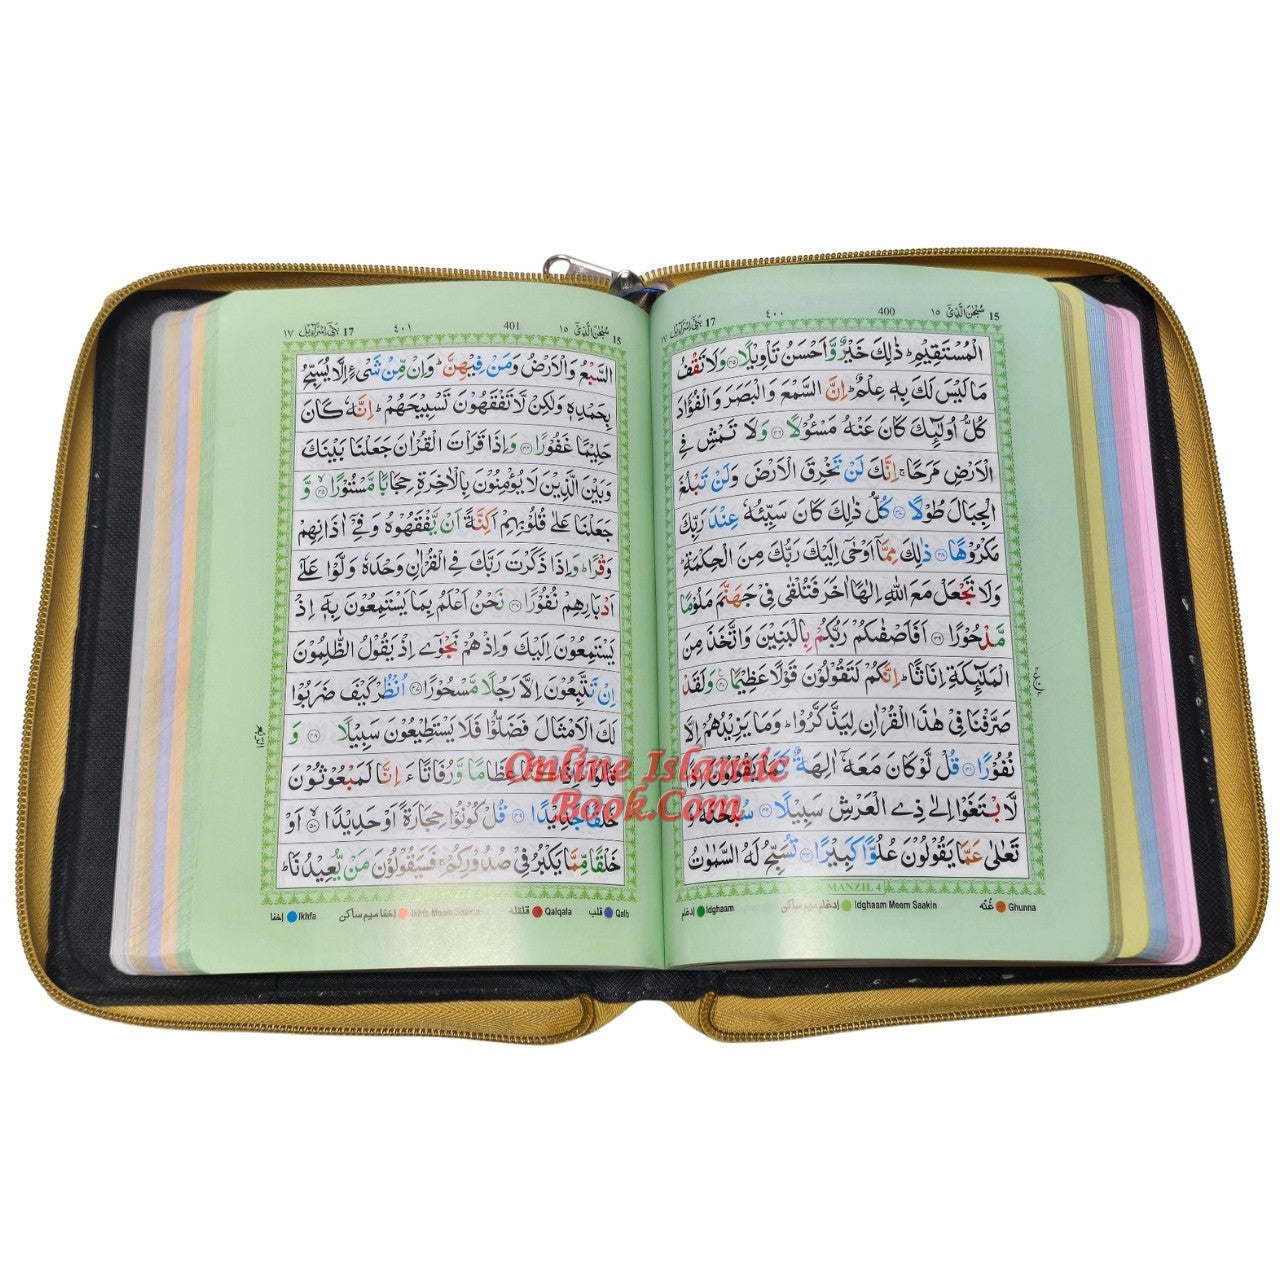 15 سُبْحٰنَ الَّذِیْۤ ١٥ 400 ٤٠٠ 17 بَنِیْۤ اِسْرَآءِیْل ١٧
الْمُسْتَقِیْمِ ؕ ذٰلِكَ خَیْرٌ وَّ اَحْسَنُ تَاْوِیْلًا ۝۳۵ وَ لَا تَقْفُ
مَا لَیْسَ لَكَ بِهٖ عِلْمٌ ؕ اِنَّ السَّمْعَ وَ الْبَصَرَ وَ الْفُؤَادَ
كُلُّ اُولٰٓىِٕكَ كَانَ عَنْهُ مَسْـُٔوْلًا ۝۳۶ وَ لَا تَمْشِ فِی
الْاَرْضِ مَرَحًا ۚ اِنَّكَ لَنْ تَخْرِقَ الْاَرْضَ وَ لَنْ تَبْلُغَ
الْجِبَالَ طُوْلًا ۝۳۷ كُلُّ ذٰلِكَ كَانَ سَیِّئُهٗ عِنْدَ رَبِّكَ
مَكْرُوْهًا ۝۳۸ ذٰلِكَ مِمَّاۤ اَوْحٰۤی اِلَیْكَ رَبُّكَ مِنَ الْحِكْمَةِ ؕ
وَ لَا تَجْعَلْ مَعَ اللّٰهِ اِلٰهًا اٰخَرَ فَتُلْقٰی فِیْ جَهَنَّمَ مَلُوْمًا
مَّدْحُوْرًا ۝۳۹ اَفَاَصْفٰىكُمْ رَبُّكُمْ بِالْبَنِیْنَ وَ اتَّخَذَ مِنَ
الْمَلٰٓىِٕكَةِ اِنَاثًا ؕ اِنَّكُمْ لَتَقُوْلُوْنَ قَوْلًا عَظِیْمًا ۝۴۰ وَ لَقَدْ
صَرَّفْنَا فِیْ هٰذَا الْقُرْاٰنِ لِیَذَّكَّرُوْا ؕ وَ مَا یَزِیْدُهُمْ اِلَّا
نُفُوْرًا ۝۴۱ قُلْ لَّوْ كَانَ مَعَهٗۤ اٰلِهَةٌ كَمَا یَقُوْلُوْنَ اِذًا
لَّا بْتَغَوْا اِلٰی ذِی الْعَرْشِ سَبِیْلًا ۝۴۲ سُبْحٰنَهٗ وَ
تَعٰلٰی عَمَّا یَقُوْلُوْنَ عُلُوًّا كَبِیْرًا ۝۴۳ تُسَبِّحُ لَهُ السَّمٰوٰتُ
MANZIL 4
Ghunna غُنّه Idghaam Meem Saakin إدغام ميم ساكن Idghaam إدغام
15 سُبْحٰنَ الَّذِیْۤ ١٥ 401 ٤٠١ 17 بَنِیْۤ اِسْرَآءِیْل ١٧
السَّبْعُ وَ الْاَرْضُ وَ مَنْ فِیْهِنَّ ؕ وَ اِنْ مِّنْ شَیْءٍ اِلَّا یُسَبِّحُ
بِحَمْدِهٖ وَ لٰكِنْ لَّا تَفْقَهُوْنَ تَسْبِیْحَهُمْ ؕ اِنَّهٗ كَانَ
حَلِیْمًا غَفُوْرًا ۝۴۴ وَ اِذَا قَرَاْتَ الْقُرْاٰنَ جَعَلْنَا بَیْنَكَ
وَ بَیْنَ الَّذِیْنَ لَا یُؤْمِنُوْنَ بِالْاٰخِرَةِ حِجَابًا مَّسْتُوْرًا ۝۴۵ وَّ
جَعَلْنَا عَلٰی قُلُوْبِهِمْ اَكِنَّةً اَنْ یَّفْقَهُوْهُ وَ فِیْۤ اٰذَانِهِمْ
وَقْرًا ؕ وَ اِذَا ذَكَرْتَ رَبَّكَ فِی الْقُرْاٰنِ وَحْدَهٗ وَلَّوْا عَلٰۤی
اَدْبَارِهِمْ نُفُوْرًا ۝۴۶ نَحْنُ اَعْلَمُ بِمَا یَسْتَمِعُوْنَ بِهٖۤ اِذْ
یَسْتَمِعُوْنَ اِلَیْكَ وَ اِذْ هُمْ نَجْوٰۤی اِذْ یَقُوْلُ الظّٰلِمُوْنَ
اِنْ تَتَّبِعُوْنَ اِلَّا رَجُلًا مَّسْحُوْرًا ۝۴۷ اُنْظُرْ كَیْفَ ضَرَبُوْا
لَكَ الْاَمْثَالَ فَضَلُّوْا فَلَا یَسْتَطِیْعُوْنَ سَبِیْلًا ۝۴۸ وَ
قَالُوْۤا ءَاِذَا كُنَّا عِظَامًا وَّ رُفَاتًا ءَاِنَّا لَمَبْعُوْثُوْنَ
خَلْقًا جَدِیْدًا ۝۴۹ قُلْ كُوْنُوْا حِجَارَةً اَوْ حَدِیْدًا ۝۵۰ اَوْ
خَلْقًا مِّمَّا یَكْبُرُ فِیْ صُدُوْرِكُمْ ۚ فَسَیَقُوْلُوْنَ مَنْ یُّعِیْدُنَا ؕ
Qalb قلب Qalqala قلقله Ikhfa Meem Saakin إخفا ميم ساكن Ikhfa إخفا
Online Islamic
Book.Com